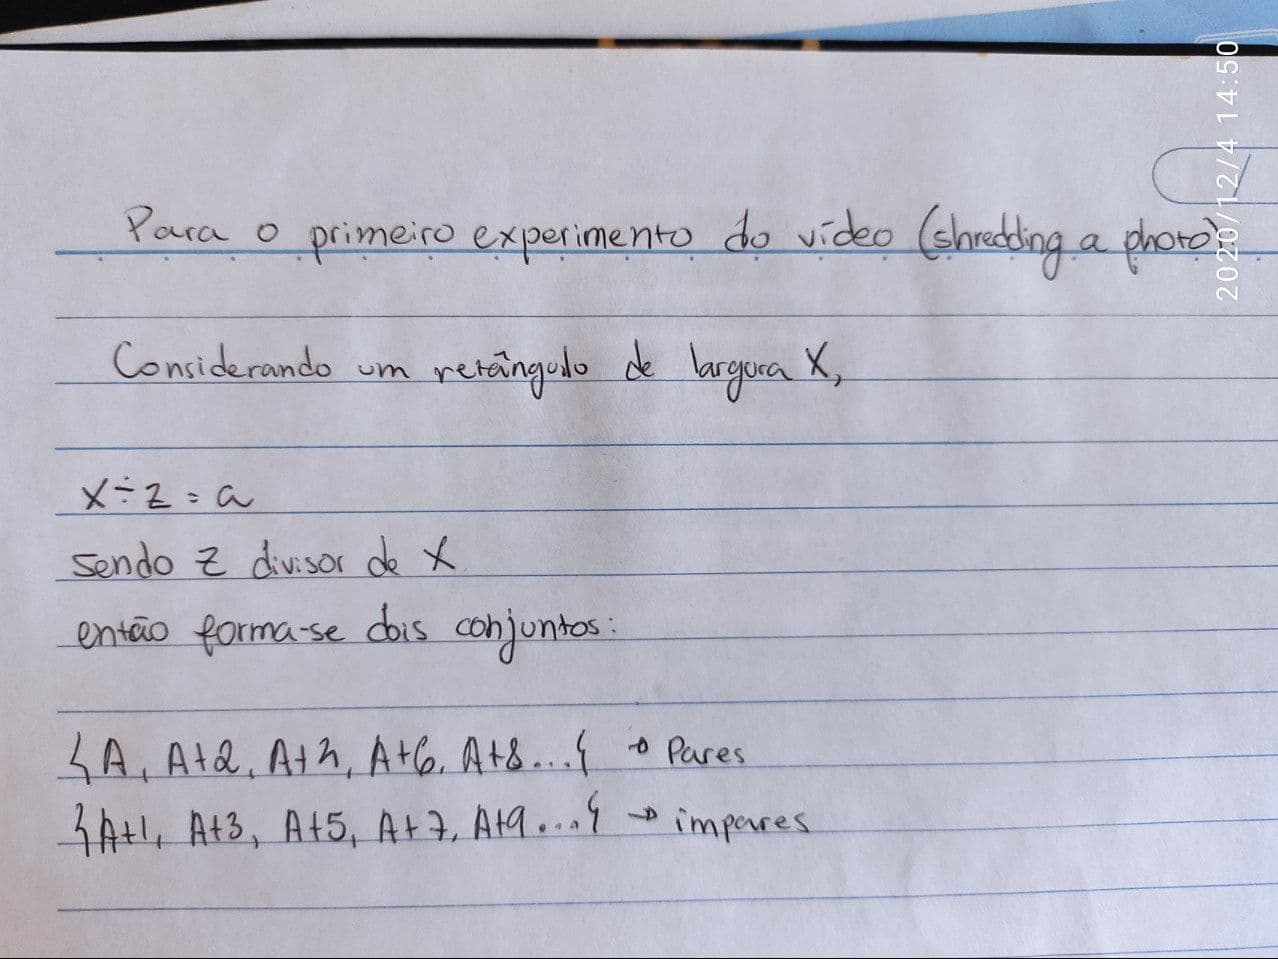 2020/12/4 14:50
Para o primeiro experimento do vídeo (shredding a photo)
Considerando um retângulo de largura X,
X÷z = a
sendo z divisor de X
então forma-se dois conjuntos:
{A, A+2, A+4, A+6, A+8...{ → Pares
}A+1, A+3, A+5, A+7, A+9...{ → impares